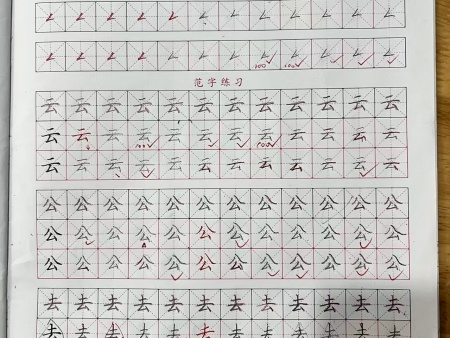 100 100
范字练习
云云云云云云云云云云云云
云云云云云云云云云云云云
100 100
云云云云云云云云云云云云
公公公公公公公公公公公公
公公公公公公公公公公公公
公公公公公公公公公公公公
去去去去去去去去去去去去
去去去去去去去去去去去去